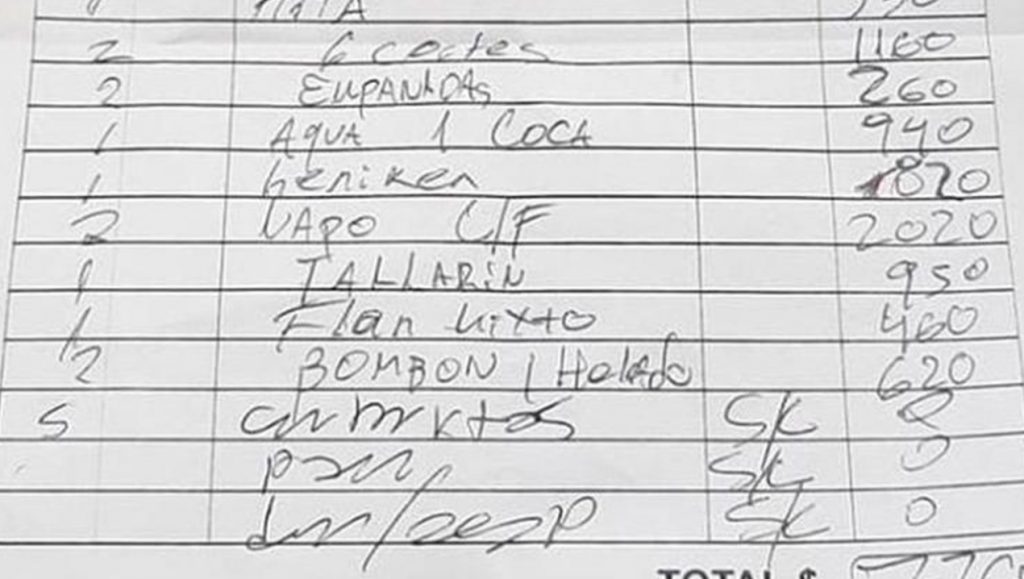 2 6 coctes 1160
2 EMPANADAS 260
1 AQUA 1 COCA 940
1 heniken 1820
2 VAPO C/F 2020
1 TALLARIN 950
1 Flan Mixto 460
1/2 BOMBON / Helado 620
5 S/C
S/C 0
S/C 0
TOTAL $